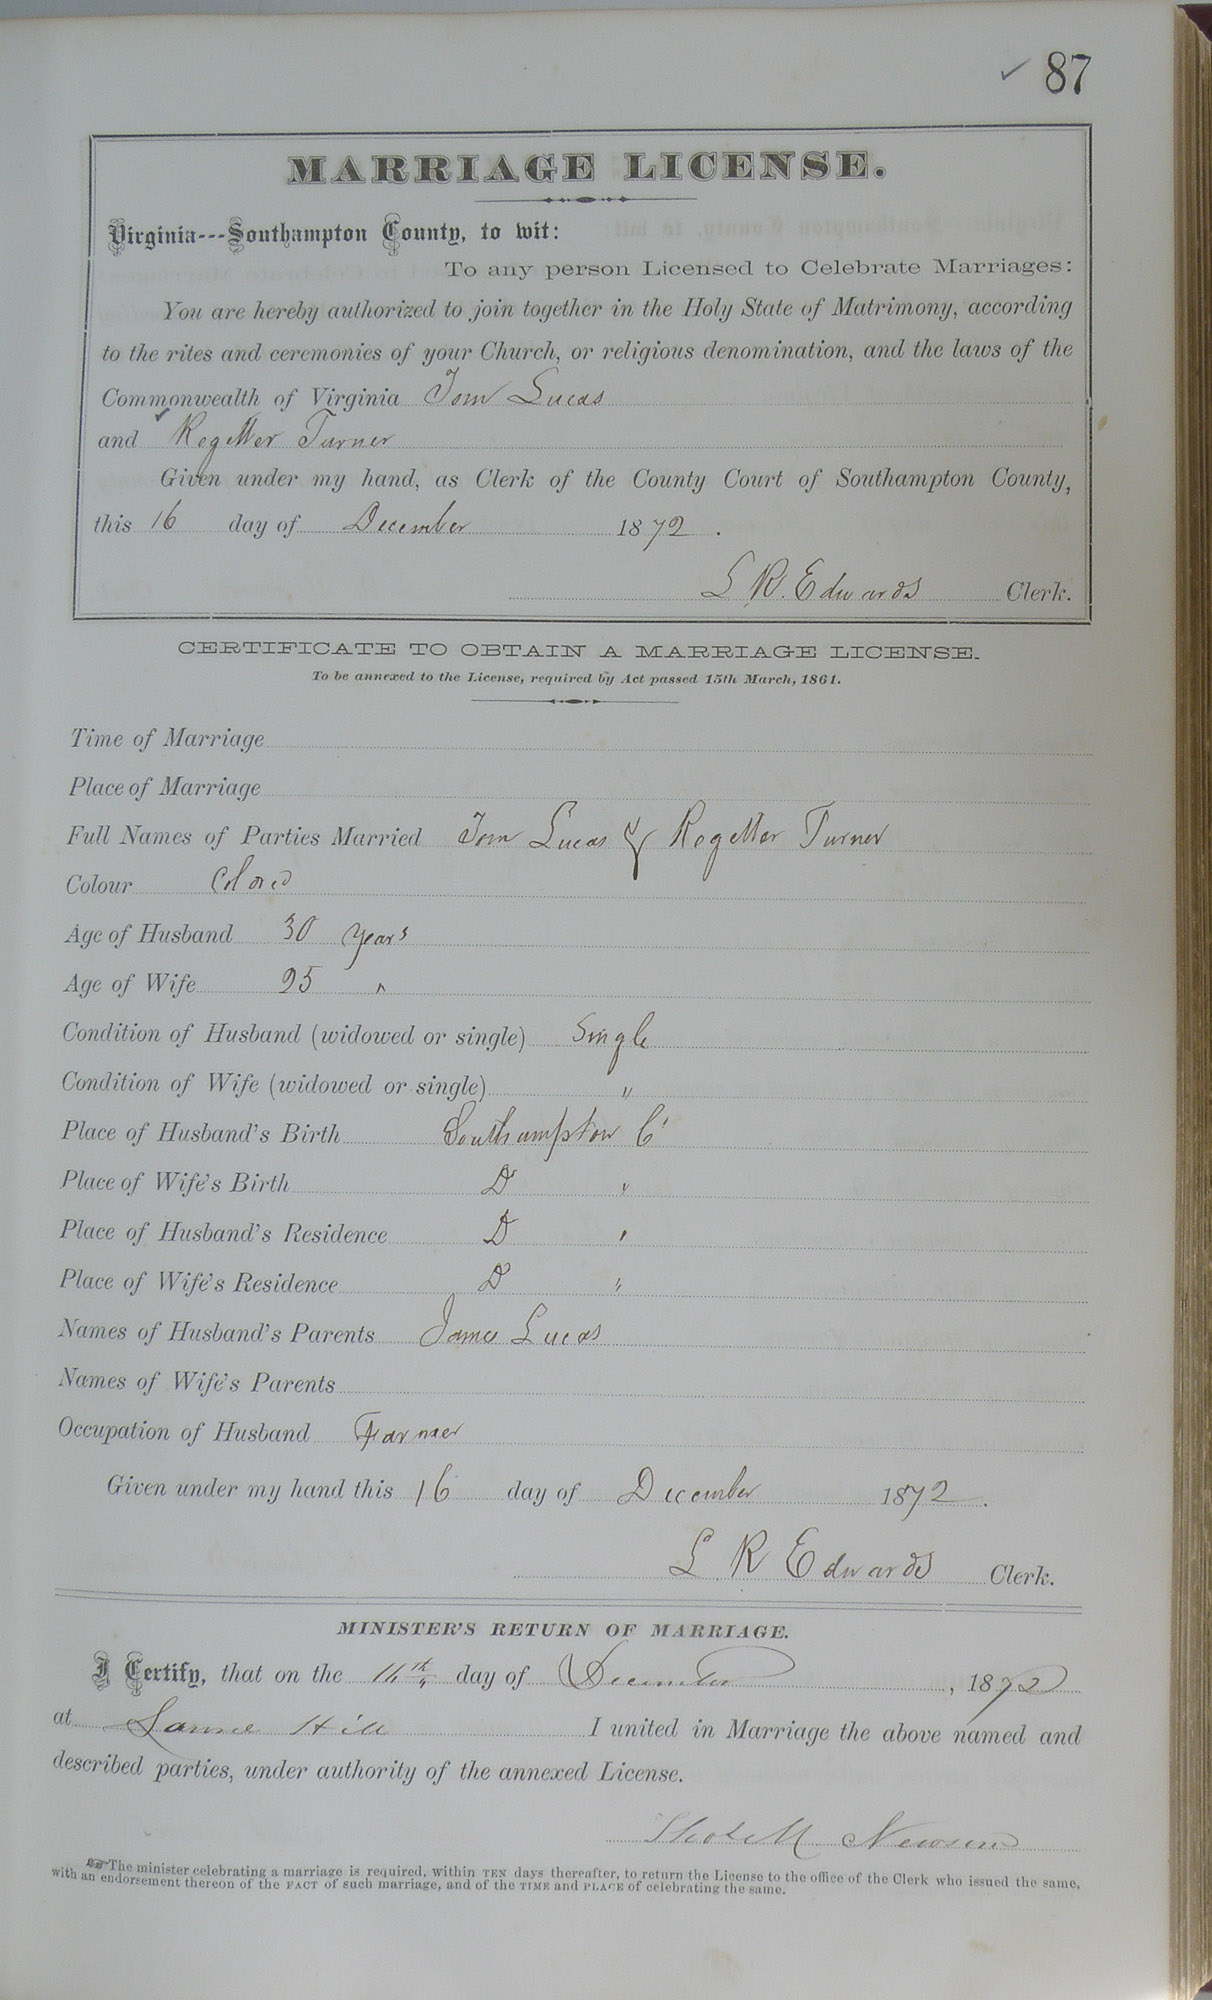 87
MARRIAGE LICENSE.
Virginia---Southampton County, to wit:
To any person Licensed to Celebrate Marriages:
You are hereby authorized to join together in the Holy State of Matrimony, according
to the rites and ceremonies of your Church, or religious denomination, and the laws of the
Commonwealth of Virginia Tom Lucas
and Rogetter Turner
Given under my hand, as Clerk of the County Court of Southampton County,
this 16 day of December 1872.
L R. Edwards Clerk.
CERTIFICATE TO OBTAIN A MARRIAGE LICENSE.
To be annexed to the License, required by Act passed 15th March, 1861.
Time of Marriage
Place of Marriage
Full Names of Parties Married Tom Lucas & Rogetter Turner
Colour Colored
Age of Husband 30 years
Age of Wife 25 "
Condition of Husband (widowed or single) Single
Condition of Wife (widowed or single) "
Place of Husband's Birth Southampton C'
Place of Wife's Birth D "
Place of Husband's Residence D "
Place of Wife's Residence D "
Names of Husband's Parents James Lucas
Names of Wife's Parents
Occupation of Husband Farmer
Given under my hand this 16 day of December 1872.
L R Edwards Clerk.
MINISTER'S RETURN OF MARRIAGE.
I Certify, that on the 16th day of December, 1872
at Hill I united in Marriage the above named and
described parties, under authority of the annexed License.
Newsom
The minister celebrating a marriage is required, within TEN days thereafter, to return the License to the office of the Clerk who issued the same,
with an endorsement thereon of the FACT of such marriage, and of the TIME and PLACE of celebrating the same.